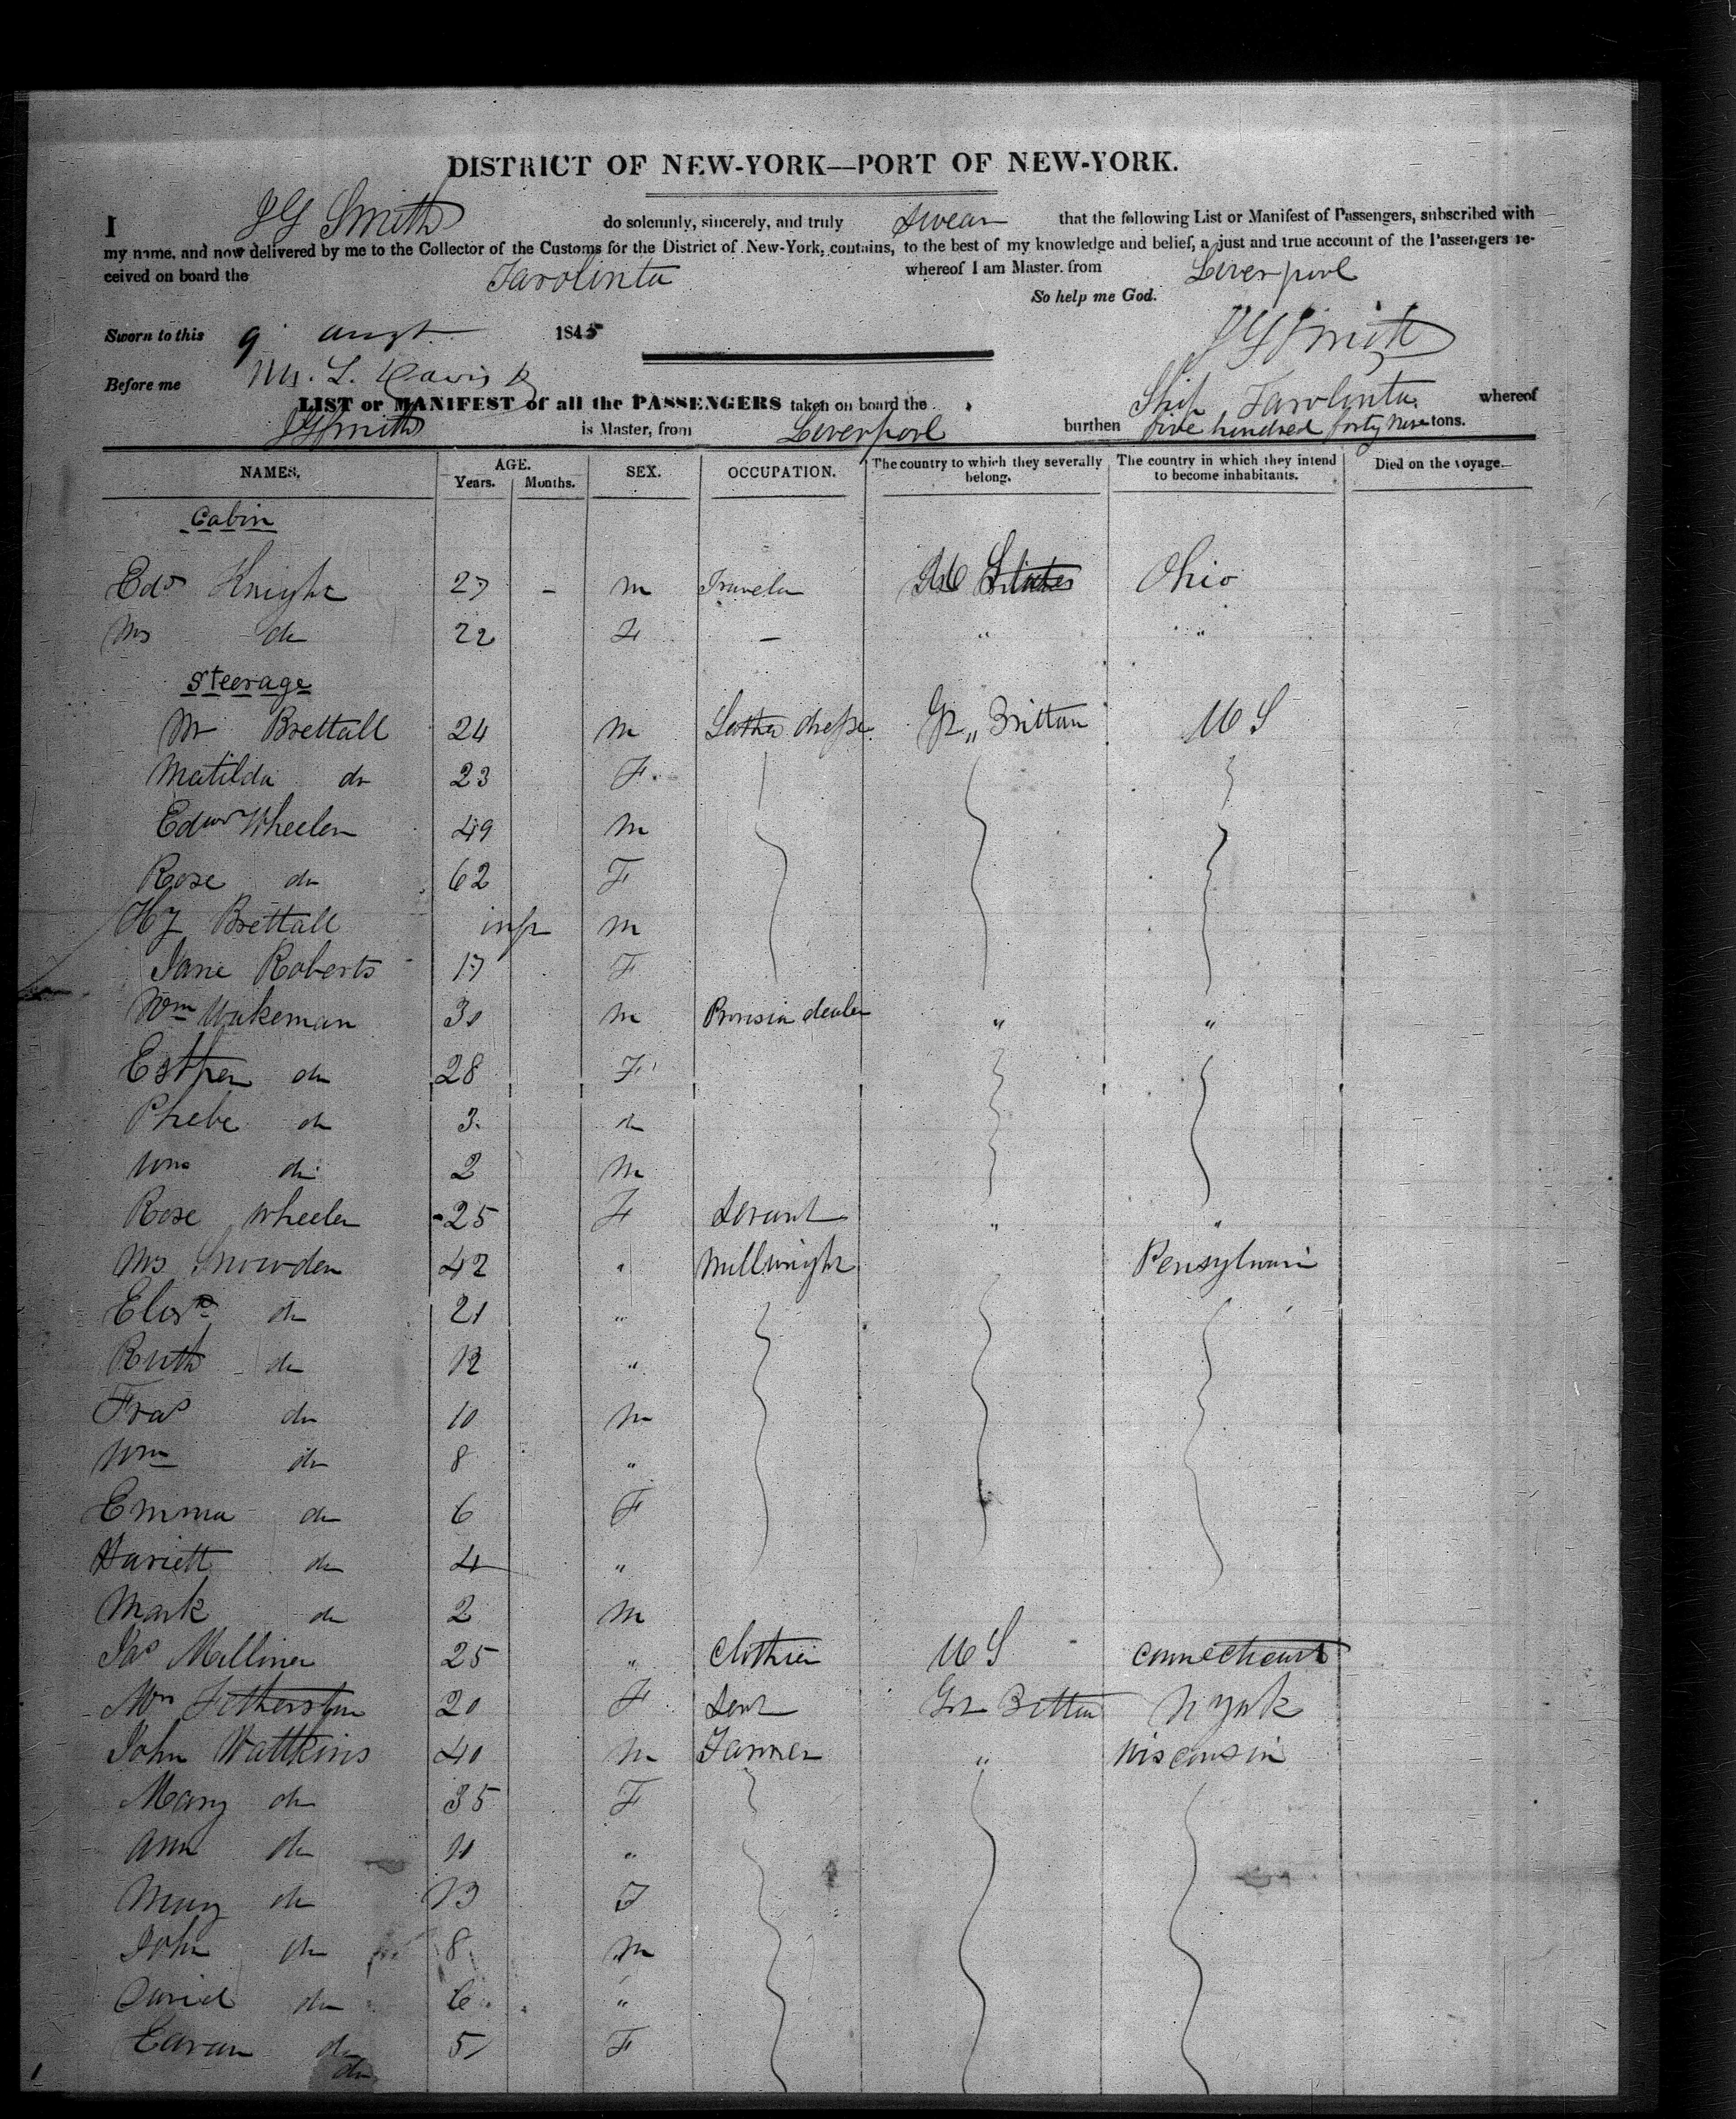 DISTRICT OF NEW-YORK—PORT OF NEW-YORK.
I J G Smith do solemnly, sincerely, and truly swear that the following List or Manifest of Passengers, subscribed with
my name, and now delivered by me to the Collector of the Customs for the District of New-York, contains, to the best of my knowledge and belief, a just and true account of the Passengers re-
ceived on board the Tarolinta whereof I am Master, from Liverpool
So help me God.
Sworn to this 9 augt 1845 J G Smith
Before me L. Davis
LIST or MANIFEST of all the PASSENGERS taken on board the Ship Tarolinta whereof
J G Smith is Master, from Liverpool burthen five hundred forty nine tons.
NAMES. AGE. Years. Months. SEX. OCCUPATION. The country to which they severally belong. The country in which they intend to become inhabitants. Died on the voyage.
Cabin
Edd Knight 27 - m Traveler States Ohio
Ms do 22 F — " "
Steerage
Mr Brettall 24 m Leather dresser Gr,, Brittan U S
Matilda do 23 F
Edwd Wheeler 49 m
Rose do 62 F
Hy Brettall inft m
Jane Roberts 17 F
Wm Wakeman 30 m Provision dealer " "
Esther do 28 F
Phebe do 3 do
Wm do 2 m
Rose Wheeler 25 F Servant " "
Ms Snowden 42 " Millwright Pensylvani
Elizth do 21 "
Ruth do 12 "
Fras do 10 m
Wm do 8 "
Emma do 6 F
Hariett do 4 "
Mark do 2 m
Jas Milliner 25 " Clothier U S Connecticut
20 F Servt Gr Brittan N York
John Wattkins 40 m Farmer " Wisconsin
Mary do 35 F
Ann do 11 "
Mary do 13 F
John do 8 m
David do 6 "
do 5 F
do